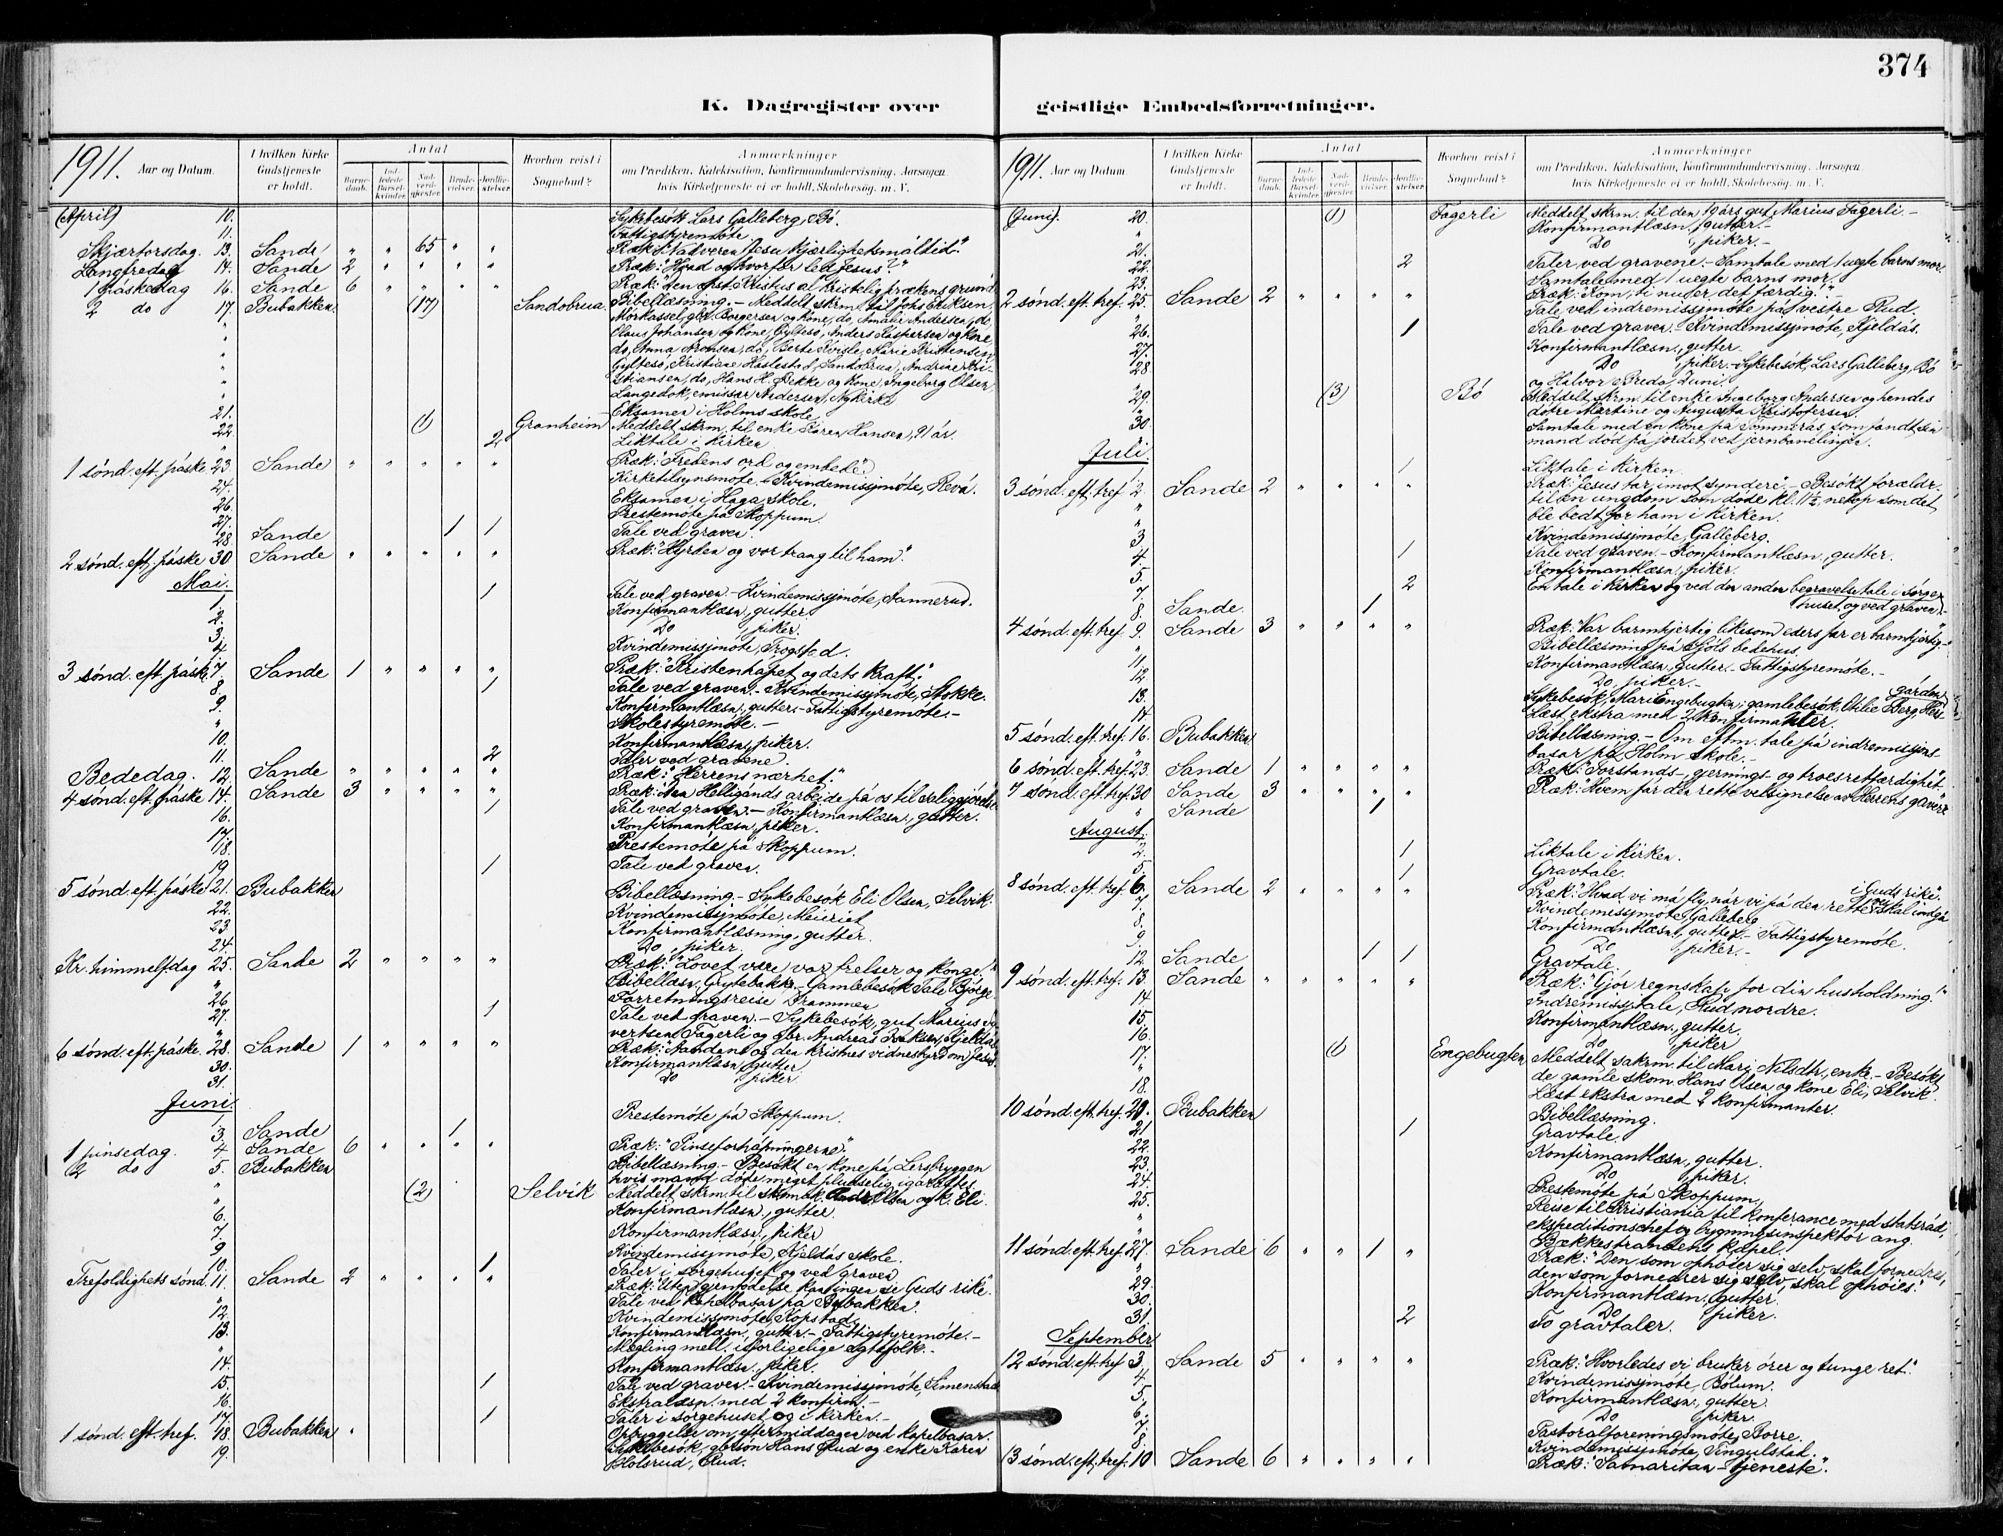 374
K. Dagregister over
1911. Aar og Datum.
I hvilken Kirke Gudstjeneste er holdt.
Antal
Barnedaab. Indledede Barselkvinder. Nadverdgjester. Brudevielser. Jordfæstelser.
Hvorhen reist i Sognebud?
Anmærkninger
om Prediken, Katekisation, Konfirmandundervisning, Aarsagen
hvis Kirketjeneste ei er holdt, Skolebesøg, m. V.
(April) 10. Sykebesök Lars Galleberg, Bö.
11. Fattigstyremöte
Skjærtorsdag. 13. Sande " " 65 " " Præk: "Nadveren Jesu kjærlighetsmåltid".
Langfredag 14. Sande 2 " " " " Præk: "Hvad og hvorfor led Jesus?"
1 påskedag 16. Sande 6 " " " " Præk: "Den opst. Kristus al kristelig prækens grund
2 do 17. Bubakken (17) Sandobrua Bibellæsning. - Meddelt skrm. til Johs Eriksen,
" Mörkassel, gbr. Borgersen og kone, do, Amalie Andersen, do,
" Claus Johansen og kone, Gyltesö, Anders Kaspersen og kone,
" do, Anna Aronsen, do, Berte Kvisle, Marie Kristensen
" Gyltesö, Kristiane Haslestad, Sandobrua, Andrine Kri-
" stiansen, do, Hans H. Bekke og kone, Ingeborg Olsen,
" Langedok, emissær Andersen, Nykirke
21. Eksamen i Holms skole
22. (1) Granheim Meddelt skrm. til enke Karen Hansen, 91 år.
" 2 Liktale i kirken
1 sönd. eft. påske 23. Sande " " " " " Præk: "Fredens ord og embede".
24. Kirketilsynsmöte. - Kvindemissjmöte, Revå.
26. Eksamen i Haga skole.
27. Prestemöte på Skoppum.
28 Sande 1 1 Tale ved graven.
2 sönd. eft. påske 30 Sande " " " " " Præk: "Hyrden og vor trang til ham".
Mai.
1. 1 Tale ved graven. - Kvindemissjmöte, Sannerud.
2. Konfirmantlæsn, gutter.
3. Do , piker.
4. Kvindemissjmöte, Trogstad.
3 sönd. eft. påske 7. Sande 1 " " " " Præk: "Kristenhåpet og dets kraft".
8. 1 Tale ved graven. - Kvindemissjmöte, Stokke.
9. Konfirmantlæsn, gutter. - Fattigstyremöte. -
" Skolestyremöte. -
10. Konfirmantlæsn, piker.
11. 2 Taler ved gravene.
Bededag. 12. Sande " " " " " Præk: "Herrens nærhet".
4 sönd. eft. påske 14. Sande 3 " " " " Præk: "Den Helligånds arbeide på os til saliggjörelse
16. 1 Tale ved graven. - Konfirmantlæsn, gutter.
17. Konfirmantlæsn, piker.
18. Prestemöte på Skoppum.
19. 1 Tale ved graven.
5 sönd. eft. påske 21. Bubakken Bibellæsning. - Sykebesök Eli Olsen, Selvik.
22. Kvindemissjmöte, Meieriet
23 Konfirmantlæsning, gutter.
24. Do , piker.
Kr. himmelfdag 25. Sande 2 " " " " Præk: "Lovet være vor frelser og konge!"
" Bibellæsn, Grytebakk. - Gamlebesök Tale Bjørge.
26. Forretningsreise Drammen
27. 1 Tale ved graven. - Sykebesök, gut Marius Sy-
" vertsen Fagerli og gbr. Andreas Iraksen, Kjeldås
6 sönd. eft. påske 28. Sande 1 " " " " Præk: "Aandens og den kristnes vidnesbyrd om Jesus".
30. Konfirmantlæsn, gutter
31. Do , piker.
Juni.
1. Prestemöte på Skoppum.
3. Sande 1
1 pinsedag. 4. Sande 6 " " " " Præk: "Pinseforhåpningerne".
2 do 5. Bubakken Bibellæsning. - Besökt en kone på Lersbryggen
" hvis mand döde meget pludselig igåraftes.
" (2) Selvik Meddelt skrm. til skomak. Hans Olsen og k. Eli.
6. Konfirmantlæsn, gutter.
7. Konfirmantlæsn, piker
9. Kvindemissjmöte, Kjeldås skole.
10. 1 Taler i sörgehuset og ved graven
Trefoldighets sönd. 11. Sande 2 " " " " Præk: "Uten gjenfödelse kan ingen se Guds rike".
" Tale ved kapelbasar på Bubakken.
12. Kvindemissjmöte, Kopstad,
13. Konfirmantlæsn, gutter. - Fattigstyremöte. -
" Mægling mell. uforligelige ægtefolk.
14. Konfirmantlæsn, piker.
15. 1 Tale ved graven. - Kvindemissjmöte, Simenstad
16. Ekstralæsn. med 2 konfirm. -
17. 1 Taler i sörgehuset og i kirken. -
1 sönd. eft. tref. 18. Bubakken Opbyggelse om eftermiddagen ved kapelbasar.
19. Sykebesök, gbrsön Hans Rud og enke Karen
Holsrud, Rud.
geistlige Embedsforretninger.
1911. Aar og Datum.
I hvilken Kirke Gudstjeneste er holdt.
Antal
Barnedaab. Indledede Barselkvinder. Nadverdgjester. Brudevielser. Jordfæstelser.
Hvorhen reist i Sognebud?
Anmærkninger
om Prediken, Katekisation, Konfirmandundervisning, Aarsagen
hvis Kirketjeneste ei er holdt, Skolebesøg, m. V.
(Juni). 20. (1) Fagerli Meddelt skrm. til den 19 års gut Marius Fagerli. -
" Konfirmantlæsn, gutter. -
21. Do , piker. -
22. 2 Taler ved gravene. - Samtale med 1 uegte barns mor.
23. Samtale med 1 uegte barns mor.
2 sönd. eft. tref. 25. Sande 2 " " " " Præk: "Kom, ti nu er det færdig". -
" Tale ved indremissjmöte på vestre Rud.
26. 1 Tale ved graven. - Kvindemissjmöte, Kjeldås.
27. Konfirmantlæsn, gutter
28. Do , piker. - Sykebesök, Lars Galleberg, Bö
" og Halvor Bredo, Luni.
29. (3) Bö Meddelt skrm. til enke Ingeborg Andersen og hendes
" dötre Martine og Augusta Kristofersen.
30. Samtale med en kone på Sommerås som fandt sin
mand död på jordet, ved jernbanelinjen.
Juli.
1 Liktale i kirken.
3 sönd. eft. tref 2. Sande 2 " " " " Præk: "Jesus tar imot syndere". - Besökt forældr.
" til en ungdom som döde kl. 11½ netop som det
" ble bedt for ham i kirken.
3. Kvindemissjmöte, Galleberg.
4. 1 Tale ved graven. - Konfirmantlæsn, gutter.
5. Konfirmantlæsn, piker.
7. 2 En tale i kirken og ved den anden begravelse tale i sörge-
8. Sande. 1 huset og ved graven. -
4 sönd. eft. tref. 9. Sande 3 " " " " Præk: "Vær barmhjertig likesom eders far er barmhjertig".
" Bibellæsning på Sjöls bedehus.
11. Konfirmantlæsn, gutter. - Fattigstyremöte. -
12. Do , piker. -
13. Sykebesök, Mari Engebugten; gamlebesök, Otilie Berg, Hers-
gården
14. Læst ekstra med 2 konfirmanter.
5 sönd. eft. tref. 16. Bubakken Bibellæsning. - Om eftm. tale på indremissjons-
" basar på Holm skole. -
6 sönd. eft. tref. 23. Sande 1 " " " " Præk: "Forstands-, gjernings- og troesretfærdighet".
7 sönd. eft. tref. 30 Sande 3 " " " " Præk: "Hvem får den rette velsignelse av Herrens gaver?"
" Sande 1
August.
2. 1 Liktale i kirken.
5. 1 Gravtale.
8 sönd. eft. tref. 6. Sande 2 " " " " Præk: "Hvad vi må fly, når vi på den rette vei skal indgå
i Guds rike".
7. Kvindemissjmöte, Galleberg
8. Konfirmantlæsn, gutter. - Fattigstyremöte.
9 Do , piker. -
12. Sande 1 1 Gravtale.
9 sönd. eft. tref. 13. Sande " " " " " Præk: "Gjör regnskap for din husholdning!"
14. Indremissjtale, Rud nordre.
15. Konfirmantlæsn, gutter,
16. Do , piker
17. (1) Engebugten Meddelt sakrm. til Mari Nilsdtr, enke. - Besökt
" de gamle skom. Hans Olsen og kone Eli, Selvik.
18. Læst ekstra med 2 konfirmanter.
10 sönd. eft. tref. 20. Bubakken Bibellæsning.
21 1 Gravtale.
22. Konfirmantlæsn, gutter.
23. Do , piker.
24. Prestemöte på Skoppum,
25. Reise til Kristiania til konferance med statsråd,
" ekspeditionschef og bygningsinspektör ang.
" Bækkestrandens kapel.
11 sönd. eft. tref. 27. Sande 6 " " 1 " Præk: "Den som ophöier sig selv, skal fornedres,
" den som fornedrer sig selv, skal ophöies".
29. Konfirmantlæsn, gutter.
30. Do , piker.
31. 2 To gravtaler.
September
12 sönd. eft. tref 3. Sande 5 " " " " Præk: "Hvorledes vi bruker ören og tunge ret".
4. Kvindemissjmöte, Bölum.
5. Konfirmantlæsn, gutter
6. Do , piker.
7. Pastoralforeningsmöte, Borre.
8. Kvindemissjmöte, Tingulstad.
13 sönd. eft. tref. 10 Sande 6 " " " " Præk: "Samaritan-tjeneste".